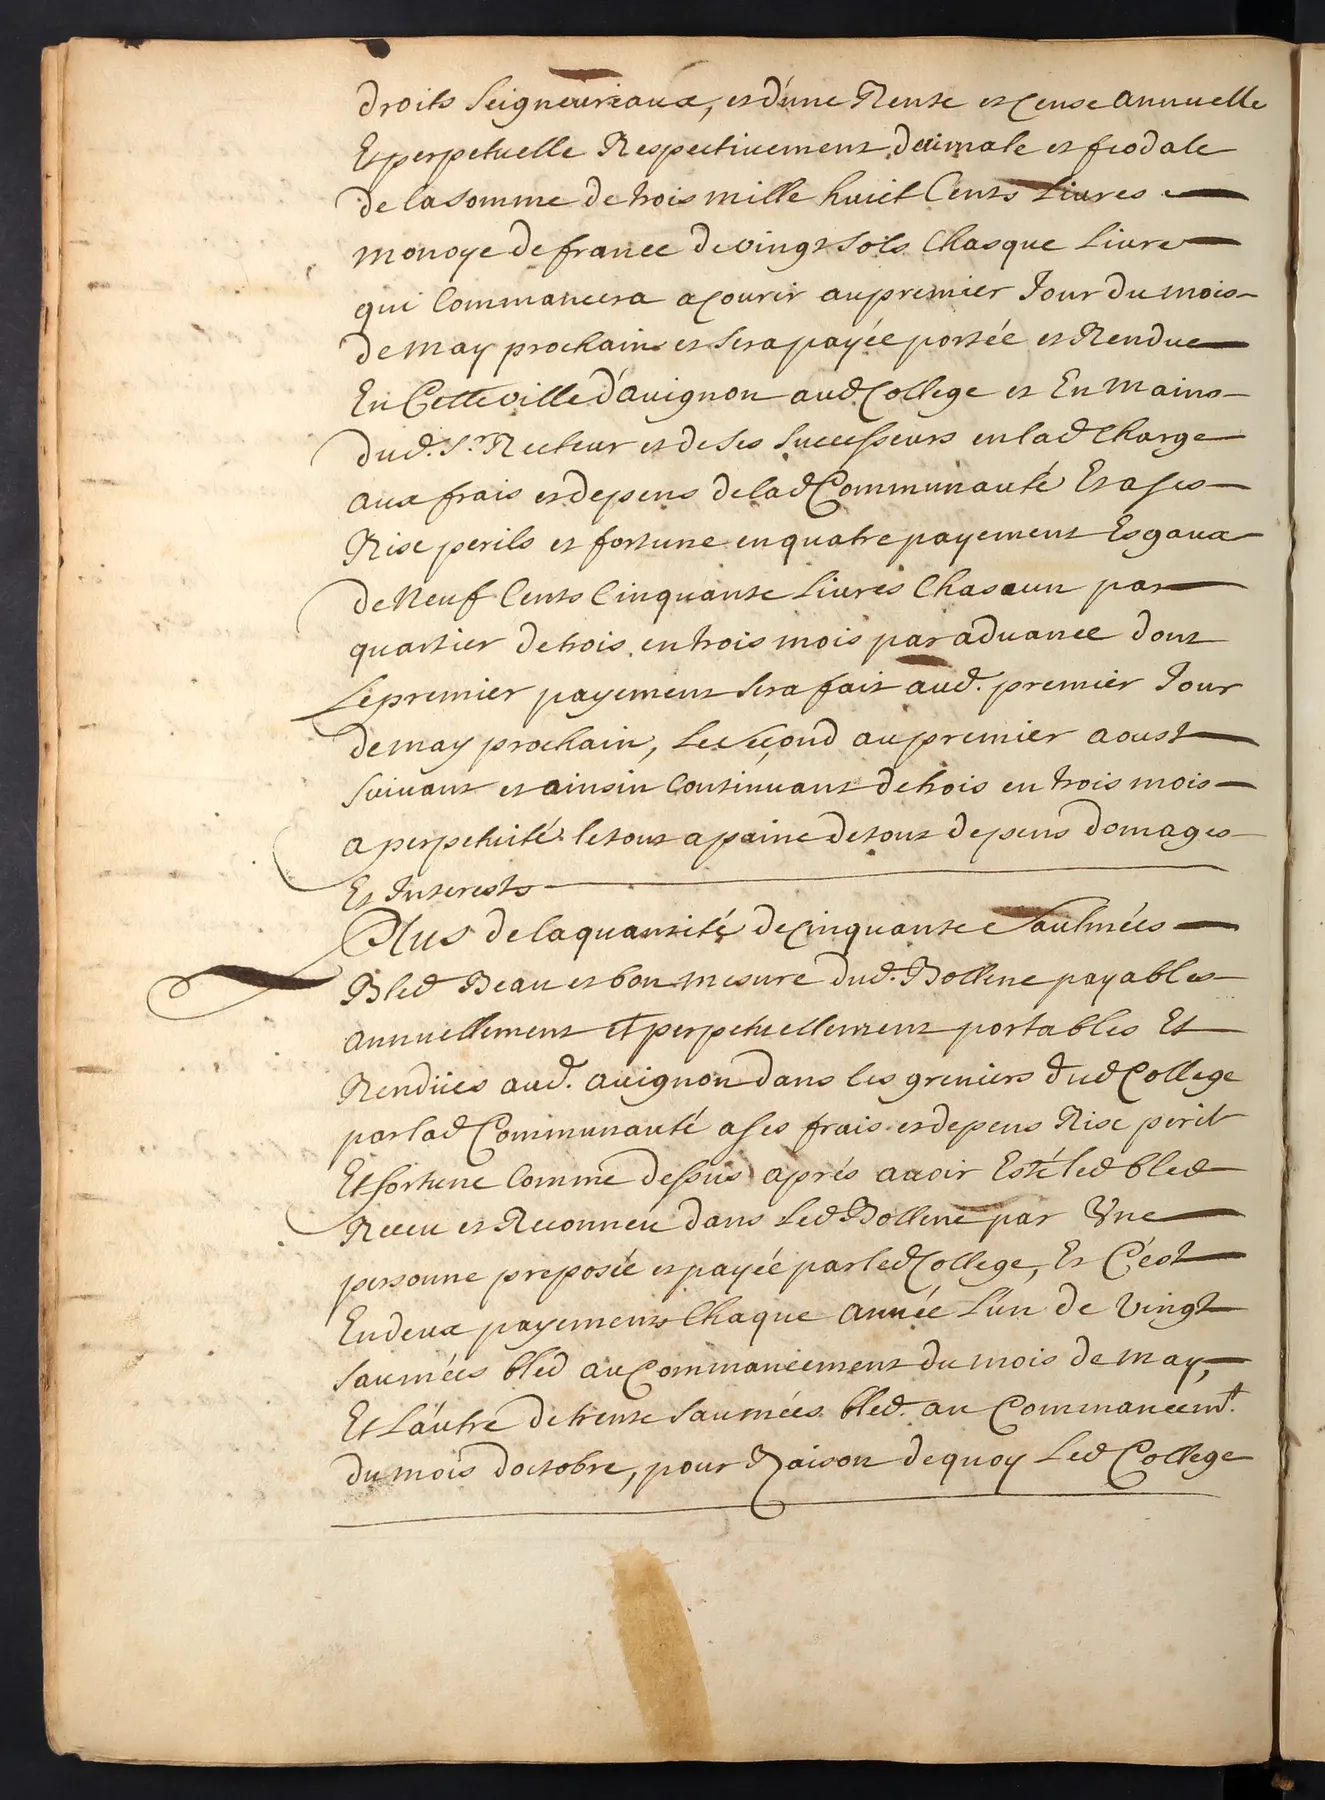 droits seigneuriaux, et d'une Rente et cense annuelle
Et perpetuelle Respectivement decimale et feodale
de la somme de trois mille huict Cents Livres
monoye de france de vingt sols Chasque Livre
qui Commancera a courir au premier Jour du mois
de may prochain et sera payée portée et Rendue
En Cette ville d'avignon aud College et En mains
dud. Sr. Recteur et de ses successeurs en lad Charge
aux frais et depens de lad Communauté Et a ses
Risc perils et fortune en quatre payement Esgaux
de Neuf Cents Cinquante Livres Chascun par
quartier de trois en trois mois par advance dont
Le premier payement sera fait aud. premier Jour
de may prochain, Le second au premier aoust
suivant et ainsin Continuant de trois en trois mois
a perpetuité le tout a paine de tout depens domages
Et Interests
Plus de la quantité de cinquante Saulmées
Bled Beau et bon mesure dud. Bollene payables
annuellement et perpetuellement portables Et
Rendües aud. avignon dans les greniers dud College
par lad Communauté a ses frais et depens Risc peril
Et fortune Comme dessus aprés avoir Esté led bled
Receu et Reconneu dans Led Bollene par Une
personne preposée et payée par led College, Et C'est
En deux payements Chaque année L'un de vingt
saumées bled au Commancement du mois de may,
Et L'autre de trente saumées bled. au Commancemt.
du mois doctobre, pour Raison de quoy Led College